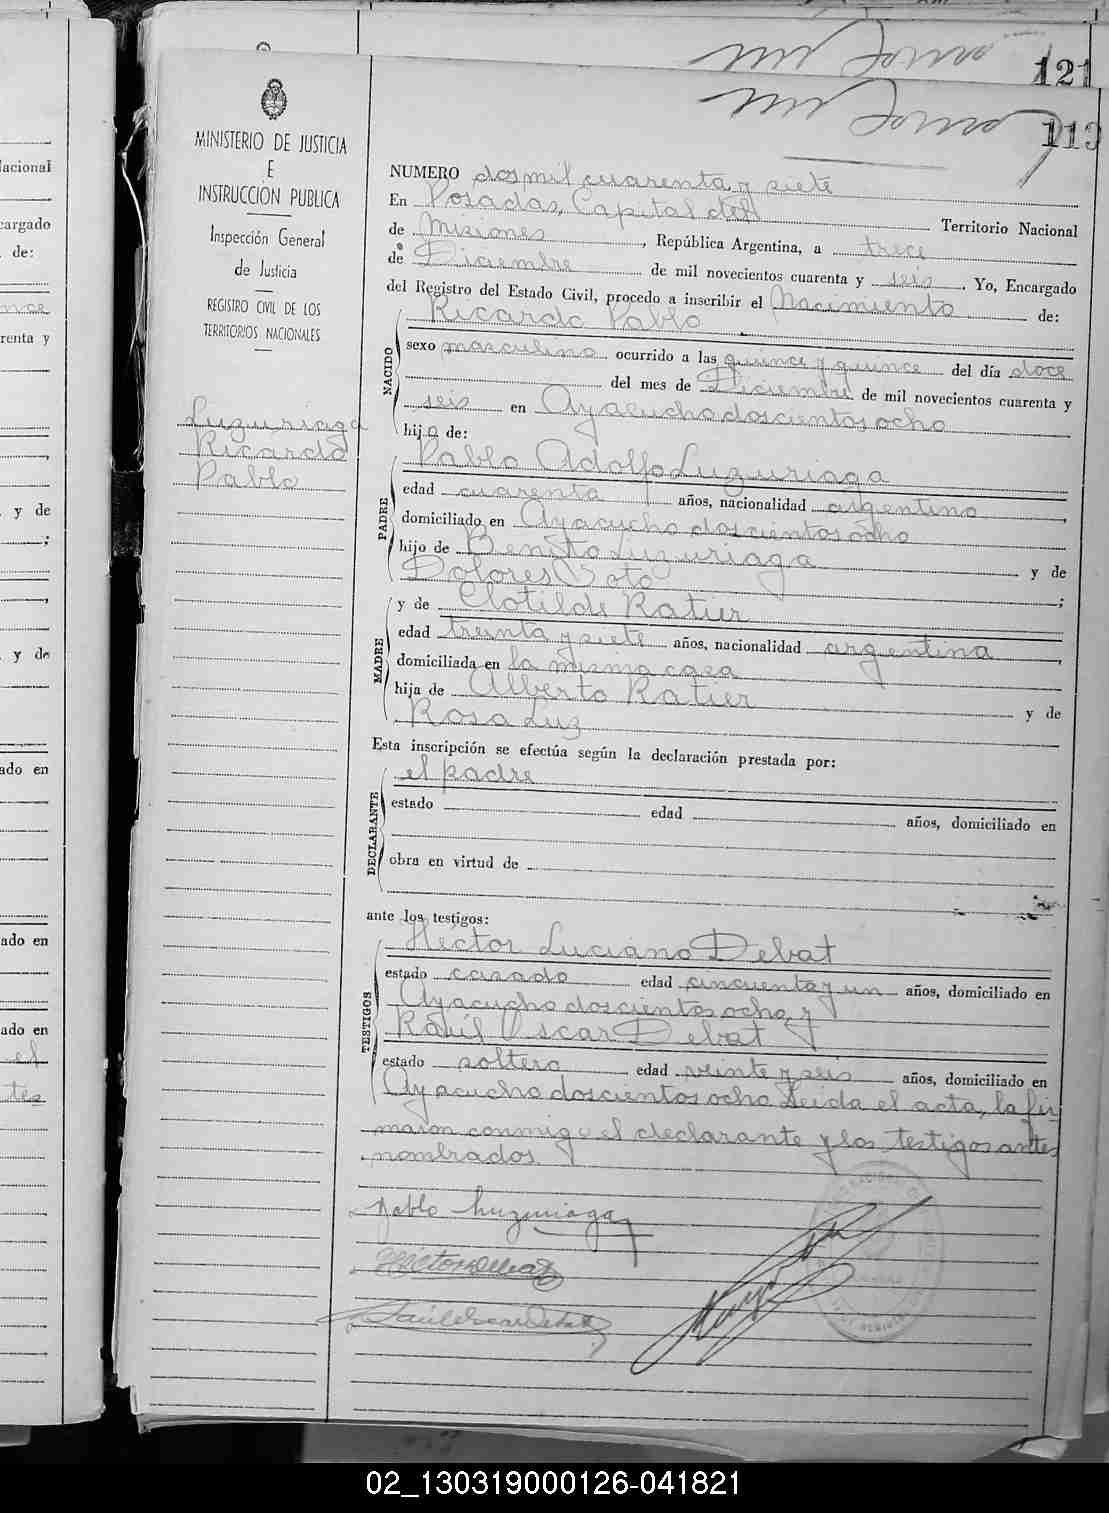 121
113
MINISTERIO DE JUSTICIA
E
INSTRUCCIÓN PUBLICA
Inspección General
de Justicia
REGISTRO CIVIL DE LOS
TERRITORIOS NACIONALES
Luzuriaga
Ricardo
Pablo
NUMERO dos mil cuarenta y siete
En Posadas, Capital del Territorio Nacional
de Misiones, República Argentina, a trece
de Diciembre de mil novecientos cuarenta y seis. Yo, Encargado
del Registro del Estado Civil, procedo a inscribir el Nacimiento de:
Ricardo Pablo
NACIDO
sexo masculino ocurrido a las quince y quince del día doce
del mes de Diciembre de mil novecientos cuarenta y
seis en Ayacucho doscientos ocho
hijo de:
Pablo Adolfo Luzuriaga
PADRE
edad cuarenta años, nacionalidad argentino,
domiciliado en Ayacucho doscientos ocho
hijo de Benito Luzuriaga y de
Dolores Soto;
y de Clotilde Ratier
MADRE
edad treinta y siete años, nacionalidad argentina,
domiciliada en la misma casa
hija de Alberto Ratier y de
Rosa Luz
Esta inscripción se efectúa según la declaración prestada por:
el padre
DECLARANTE
estado edad años, domiciliado en
obra en virtud de
ante los testigos:
Héctor Luciano Debat
TESTIGOS
estado casado edad cincuenta y un años, domiciliado en
Ayacucho doscientos ocho, y
Raúl Oscar Debat
estado soltero edad veinte y seis años, domiciliado en
Ayacucho doscientos ocho. Leida el acta, la fir
maron conmigo el declarante y los testigos antes
nombrados.
Pablo Luzuriaga
Hector Debat
Raúl Oscar Debat
acional
cargado
de:
renta y
y de
;
y de
ado en
ado en
ado en
el
tes
02_130319000126-041821